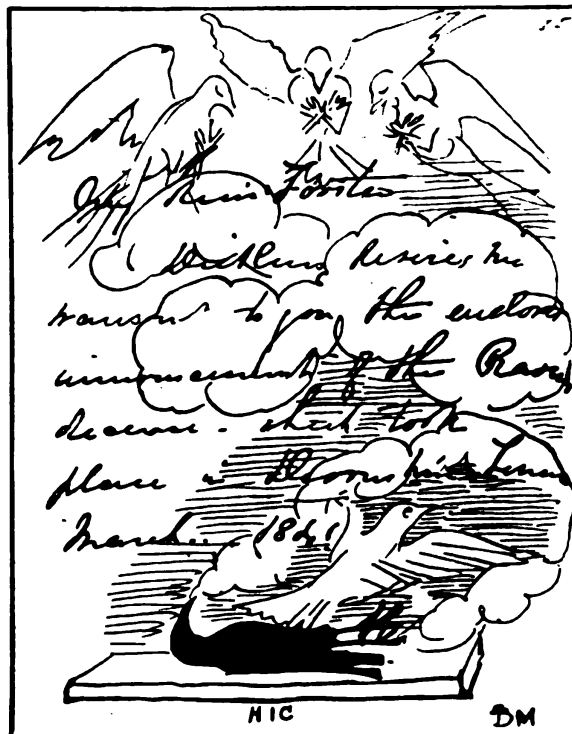 My dear Forster
Dickens desires me
transmit to you the enclosed
announcement of the Raven's
decease - which took
place in Devonshire Terrace
March 1841
HIC
DM